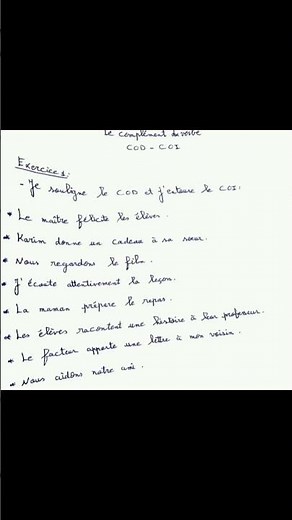 Le complément du verbe
COD - COI
Exercice 1:
- Je souligne le COD et j'entoure le COI:
* Le maître félicite les élèves.
* Karim donne un cadeau à sa sœur.
* Nous regardons le film.
* J'écoute attentivement la leçon.
* La maman prépare le repas.
* Les élèves racontent une histoire à leur professeur.
* Le facteur apporte une lettre à mon voisin.
* Nous aidons notre ami.